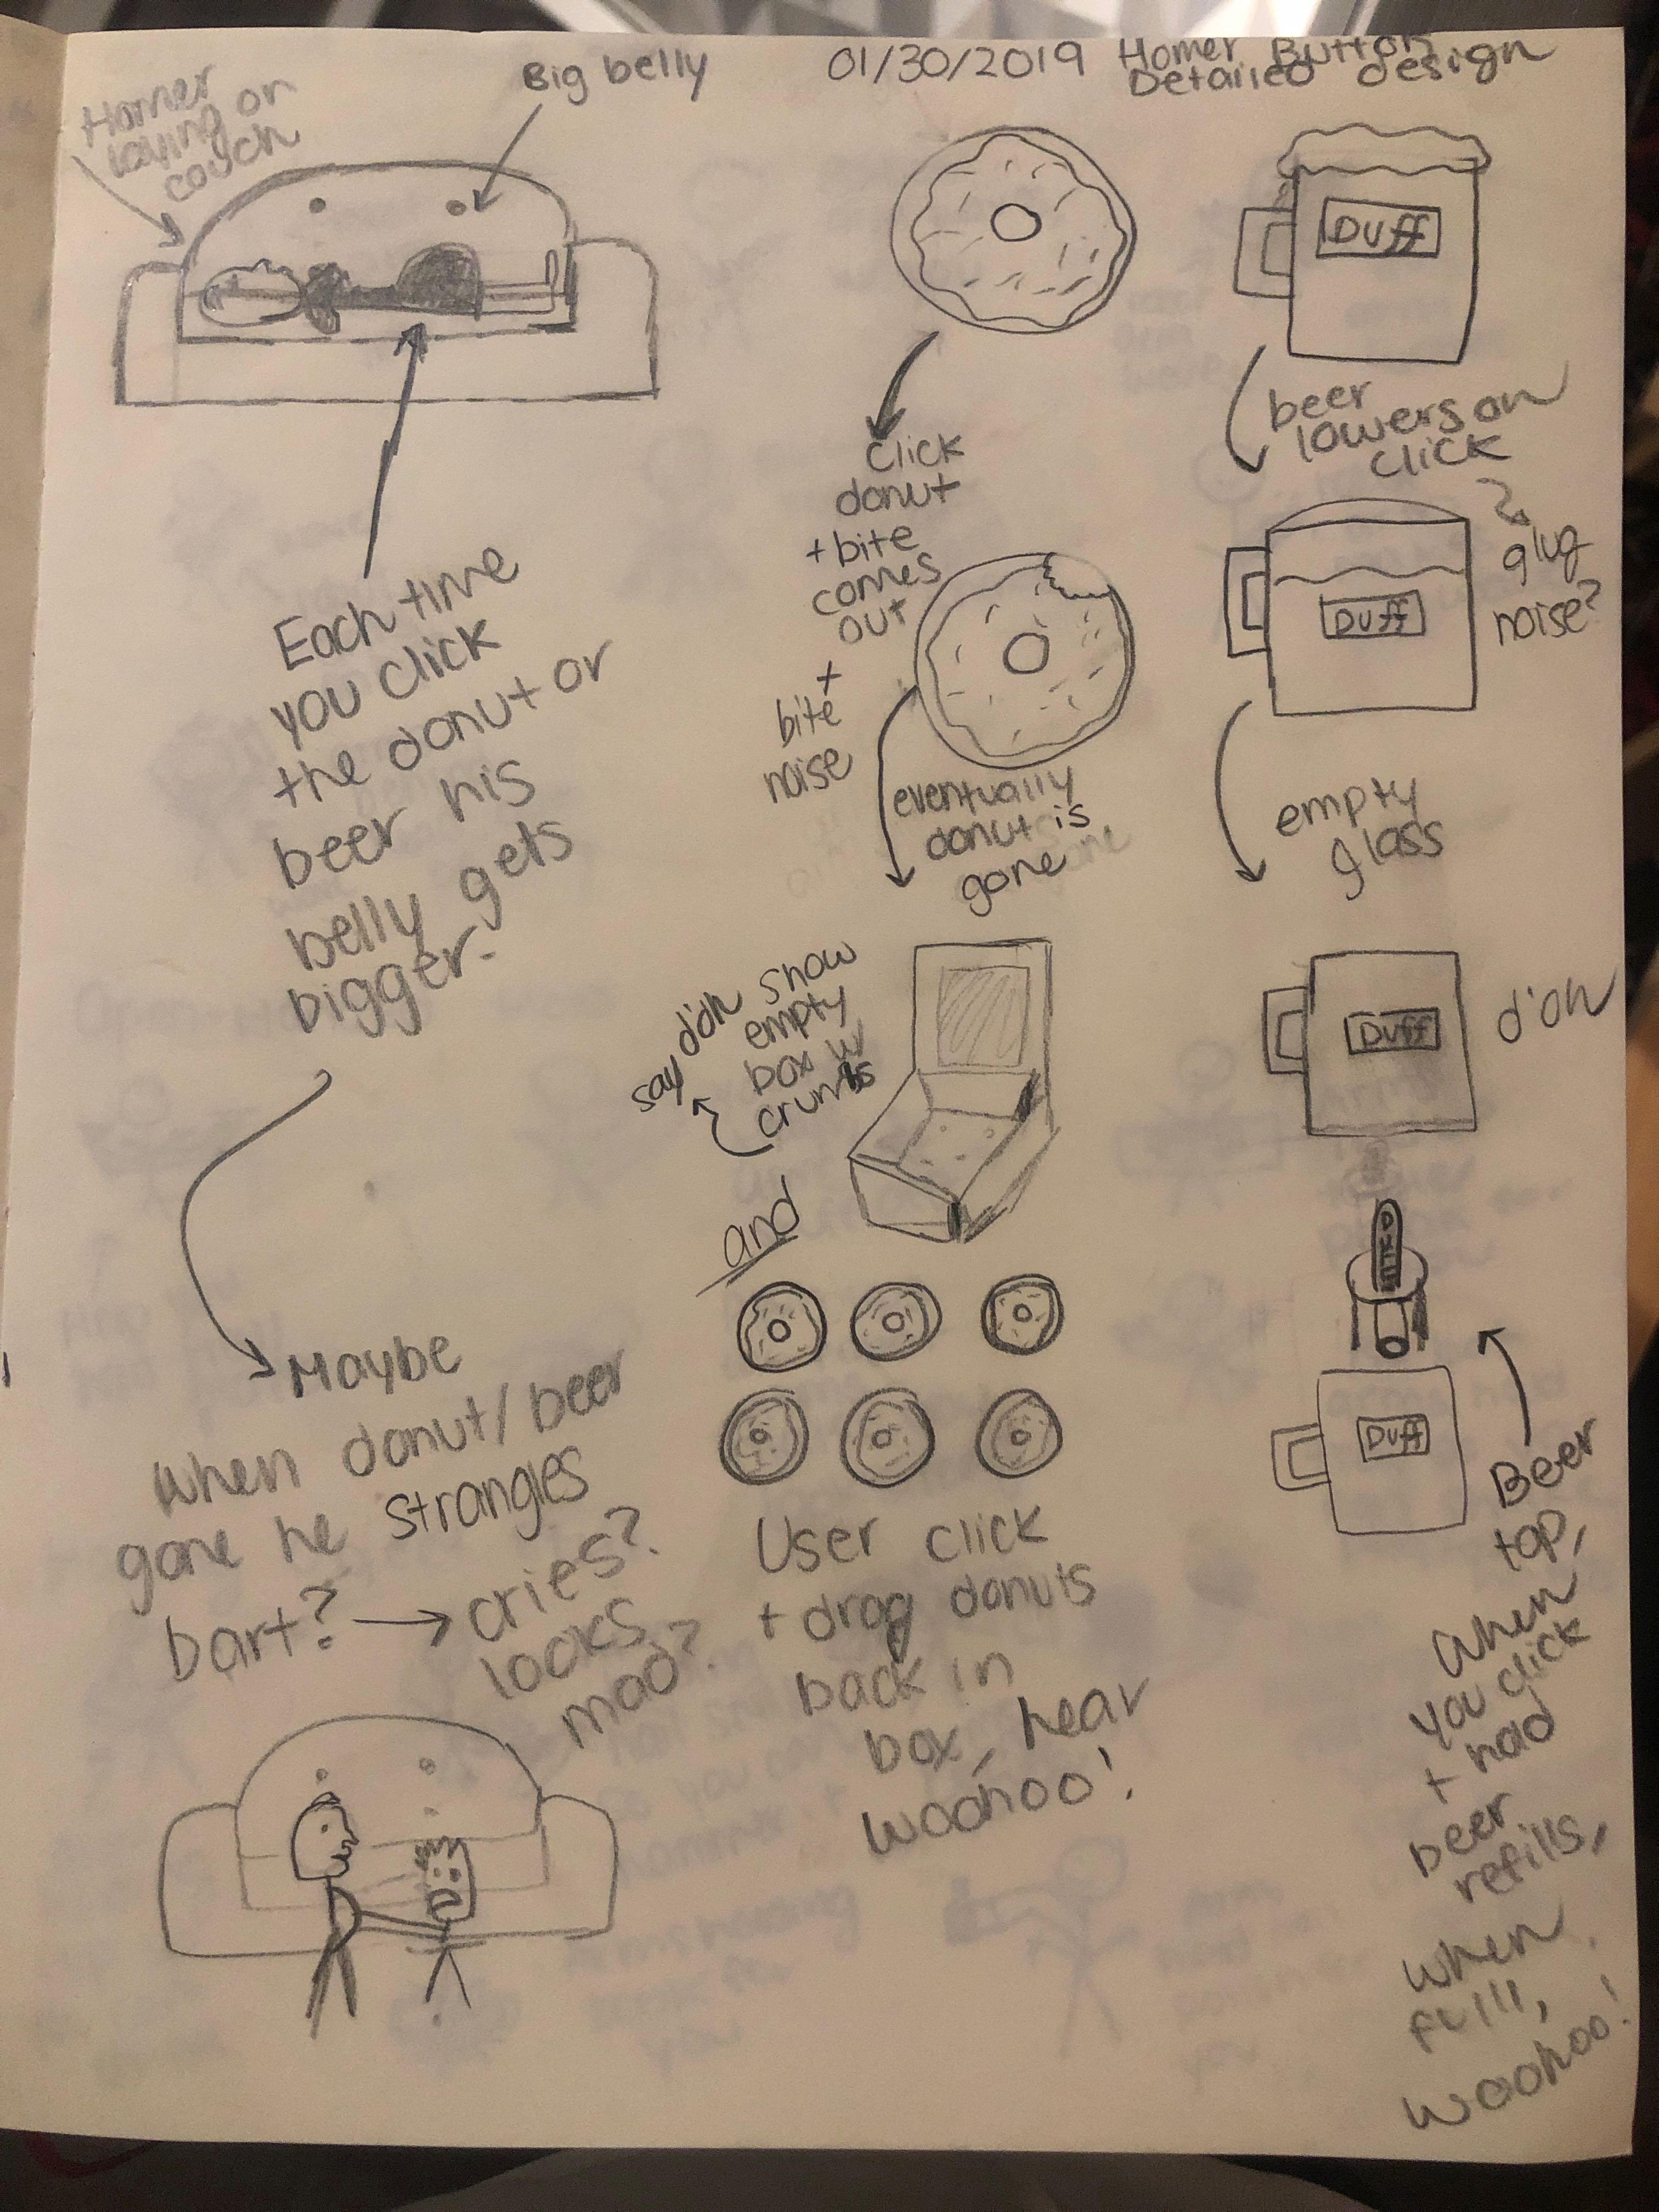 01/30/2019 Homer Button
Detailed design
Homer
laying on
couch
Big belly
Each time
you click
the donut or
beer his
belly gets
bigger.
Maybe
when donut/beer
gone he strangles
bart? → cries?
looks
mad?
click
donut
+ bite
comes
out
+
bite
noise
eventually
donut is
gone
say d'oh show
empty
box w
crumbs
and
User click
+ drag donuts
back in
box, hear
woohoo!
Duff
beer
lowers on
click
glug
noise?
Duff
empty
glass
Duff
d'oh
Duff
Beer
tap,
when
you click
+ hold
beer
refills,
when
full,
woohoo!